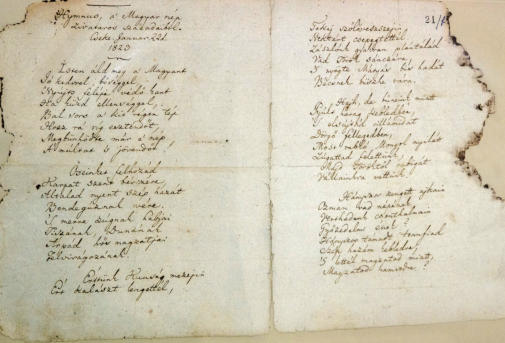 Hymnus, a Magyar nép
zivataros századaiból.
Cseke Januar. 22d.
1823
Isten áld meg a Magyart
Jó kedvvel, bőséggel,
Nyújts feléje védő kart
Ha küzd ellenséggel,
Bal sors a kit régen tép
Hozz rá víg esztendőt,
Megbünhödte már a nép
A múltat s jövendőt!
Őseinket felhozád
Kárpát szent bérczére,
Általad nyert szép hazát
Bendegúznak vére.
S merre zúgnak habjai
Tiszának, Dunának
Árpád hős magzatjai
Felvirágozának.
Értünk Kunság mezejein
Ért kalászt lengettél,
Tokaj szőlővesszejein
Nektárt csepegtettél.
Zászlónk gyakran plántálád
Vad Török sánczára,
S nyögte Mátyás bús hadát
Bécsnek büszke vára.
Hajh, de bűneink miatt
Gyúlt harag kebledben,
S elsújtád villámidat
Dörgő fellegedben,
Most rabló Mongol nyilát
Zúgattad felettünk,
Majd Töröktől
Vállainkra vettünk.
Hányszor zengett ajkain
Ozman vad népének
Vert hadunk csonthalmain
Győzedelmi ének!
Hányszor támadt tenfiad
Szép hazám kebledre,
S lettél magzatod miatt
Magzatod hamvvedre.